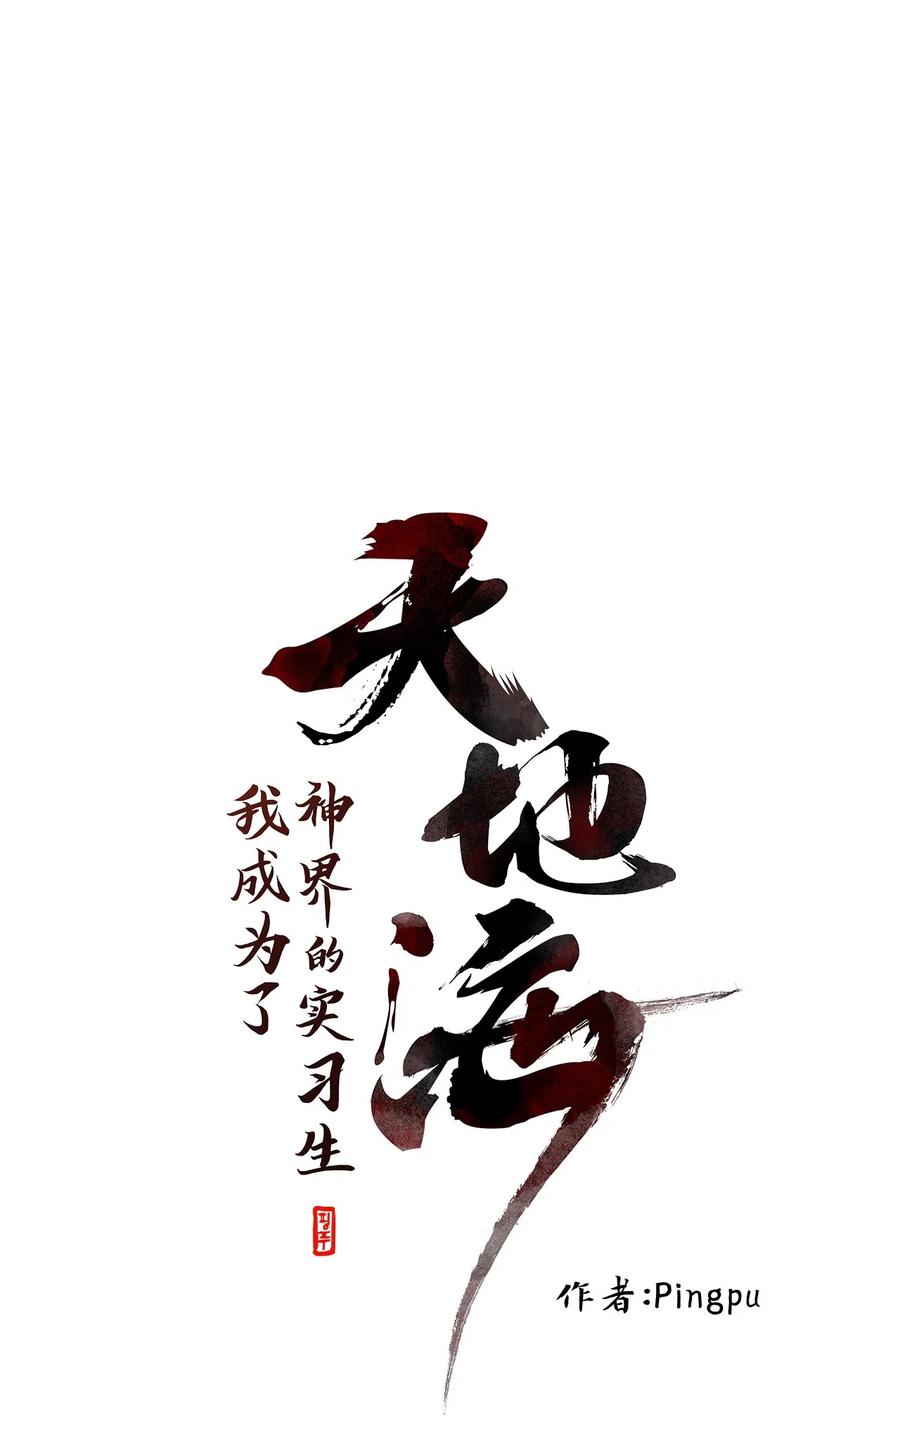 天地海
我成为了
神界的实习生
핑푸
作者:Pingpu